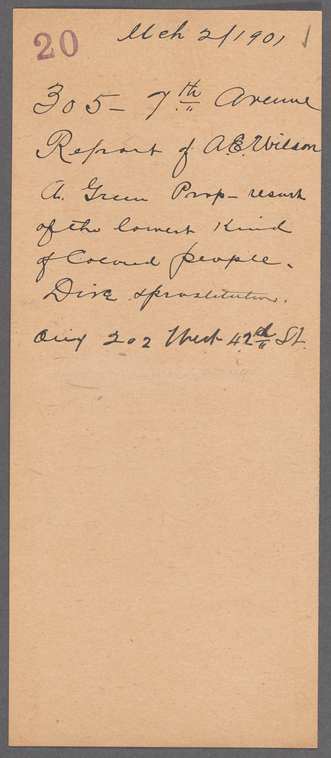 20
Mch 2/1901
305- 7th Avenue
Report of A.E. Wilson
A. Green Prop- resort
of the lowest Kind
of Colored people.
Dive & prostitution.
202 West 42th St.